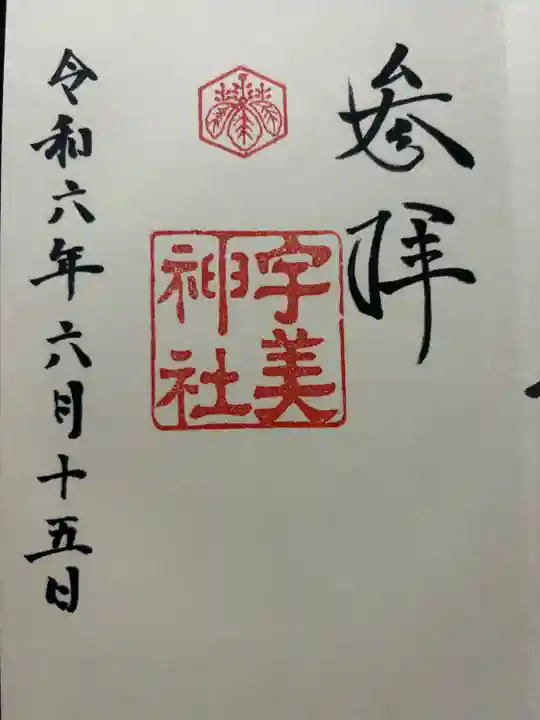 参拝
宇美
神社
令和六年六月十五日